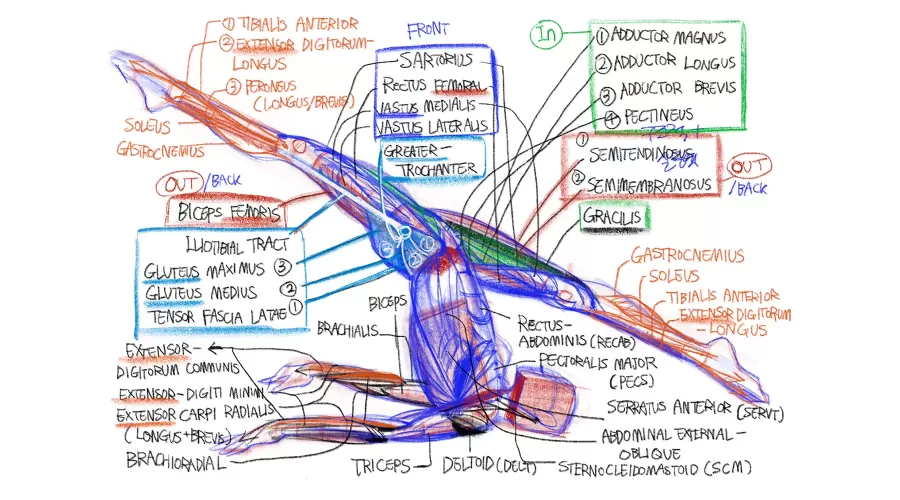 ① TIBIALIS ANTERIOR
② EXTENSOR DIGITORUM-
LONGUS
③ PERONEUS
(LONGUS/BREVIS)
SOLEUS
GASTROCNEMIUS
FRONT
SARTORIUS
RECTUS FEMORAL
VASTUS MEDIALIS
VASTUS LATERALIS
GREATER-
TROCHANTER
In
① ADDUCTOR MAGNUS
② ADDUCTOR LONGUS
③ ADDUCTOR BREVIS
④ PECTINEUS
① SEMITENDINOSUS
② SEMIMEMBRANOSUS
OUT
/BACK
GRACILIS
OUT /BACK
BICEPS FEMORIS
ILIOTIBIAL TRACT
GLUTEUS MAXIMUS ③
GLUTEUS MEDIUS ②
TENSOR FASCIA LATAE ①
③ ② ①
GASTROCNEMIUS
SOLEUS
TIBIALIS ANTERIOR
EXTENSOR DIGITORUM
- LONGUS
BICEPS
BRACHIALIS
EXTENSOR-
DIGITORUM COMMUNIS
EXTENSOR-DIGITI MINIMI
EXTENSOR CARPI RADIALIS
(LONGUS+BREVIS)
BRACHIORADIAL
TRICEPS
DELTOID (DELT)
RECTUS-
ABDOMINIS (RECAB)
PECTORALIS MAJOR
(PECS)
SERRATUS ANTERIOR (SERVT)
ABDOMINAL EXTERNAL-
OBLIQUE
STERNOCLEIDOMASTOID (SCM)